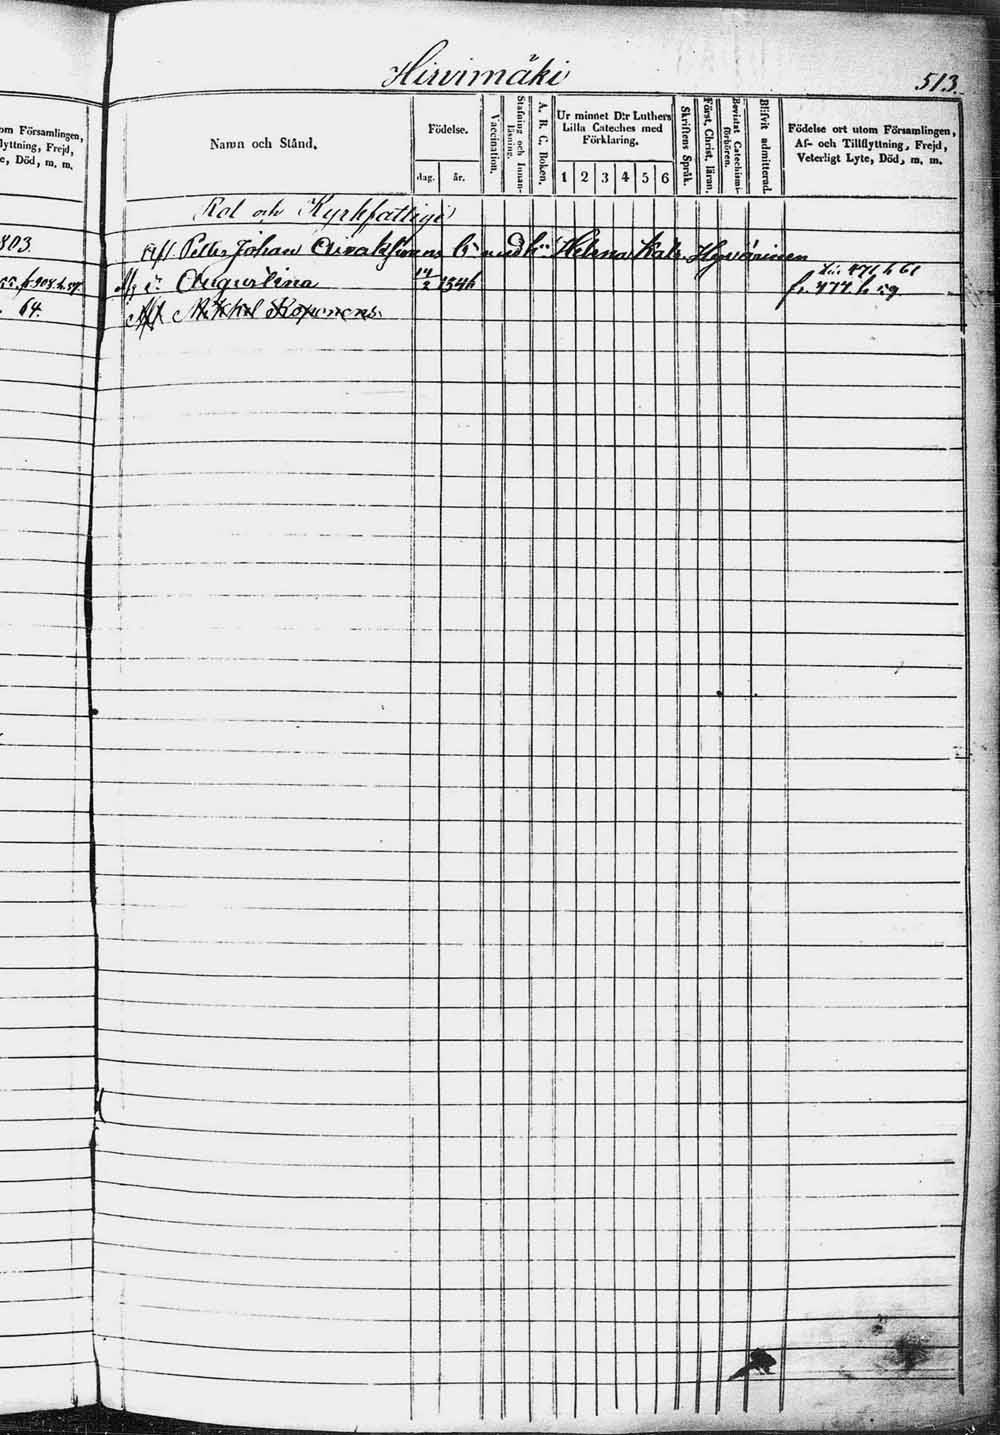 Hirvimäki
513.
om Församlingen,
lyttning, Frejd,
e, Död, m. m.
803
64.
Namn och Stånd.
Födelse.
dag. år.
Vaccination.
Stafning och Innan-
läsning.
A. B. C. Boken.
Ur minnet D:r Luthers
Lilla Cateches med
Förklaring.
1 2 3 4 5 6
Skriftens Språk.
Först. Christ. läran.
Bevistat Catechismi-
förhören.
Blifvit admitterad.
Födelse ort utom Församlingen,
Af- och Tillflyttning, Frejd,
Veterligt Lyte, Död, m. m.
Rot och Kyrkfattige
Aff Petter Johan Helena Kats. Hyvärinen
Augustina 14/2 1846
471 h 61
fr. 477. h 59
Aff Mikkel Koponens